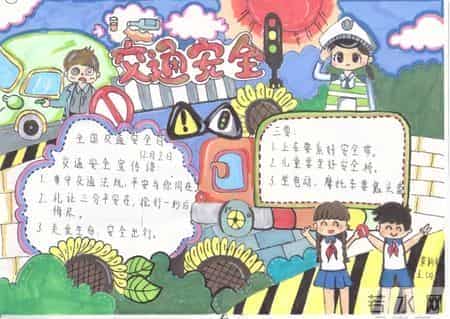 交通安全
全国交通安全日
12月2日
交通安全宣传语:
1. 遵守交通法规,平安与你同在。
2. 礼让三分平安在,抢行一秒后
悔来。
3. 关爱生命,安全出行。
二要:
1. 上车要系好安全带。
2. 儿童要坐好安全椅。
3. 坐电动、摩托车要戴头盔
若水网